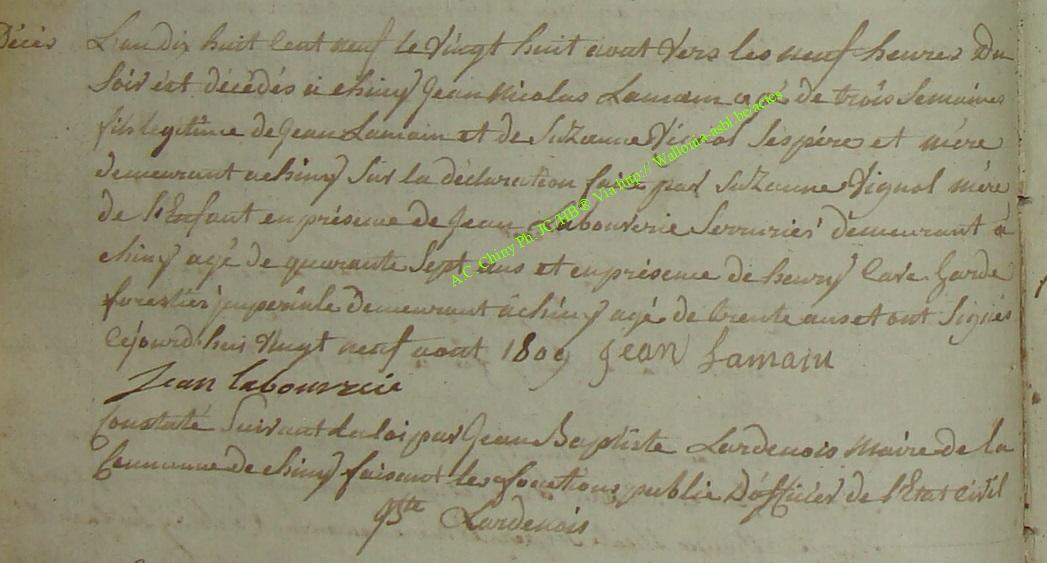 Décès L'an dix huit Cent neuf le Vingt huit aout Vers les neuf heures Du
Soir est décédés a chiny Jean Nicolas Lamain agé de trois Semaines
fils legitime de Jean Lamain et de Suzanne Vignol Ses père et mère
demeurant a chiny Sur la déclaration faite par Suzanne Vignol mère
de l'Enfant en présence de Jean Labouverie Serruriés demeurant a
chiny agé de quarante Sept ans et en présence de henry Garde
forestier imperiale demeurant a chiny agé de trente ans et ont Signés
Cejourd'hui Vingt neuf aout 1809 Jean Lamain
Jean labouverie
Constaté Suivant la loi par Jean Baptiste Lardenois Maire de la
Commune de chiny faisant les fonctions public D'officier de l'Etat Civil
Lardenois
A.C. Chiny Ph. JC HB® Via http:// Wallonia-asbl.be/actes